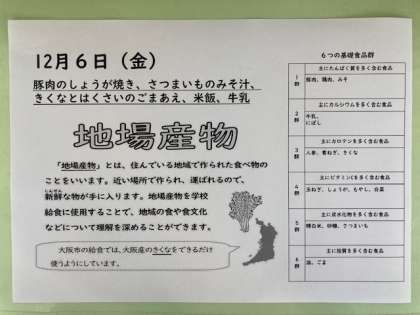 12月6日（金）
豚肉のしょうが焼き、さつまいものみそ汁、
きくなとはくさいのごまあえ、米飯、牛乳
地場産物
「地場産物」とは、住んでいる地域で作られた食べ物の
ことをいいます。近い場所で作られ、運ばれるので、
しんせん
新鮮な物が手に入ります。地場産物を学校
給食に使用することで、地域の食や食文化
などについて理解を深めることができます。
大阪市の給食では、大阪産のきくなをできるだけ
使うようにしています。
6つの基礎食品群
主にたんぱく質を多く含む食品
1群
豚肉、鶏肉、みそ
主にカルシウムを多く含む食品
2群
牛乳、
にぼし
主にカロテンを多く含む食品
3群
人参、青ねぎ、きくな
主にビタミンCを多く含む食品
4群
玉ねぎ、しょうが、もやし、白菜
主に炭水化物を多く含む食品
5群
精白米、砂糖、さつまいも
主に脂質を多く含む食品
6群
油、ごま